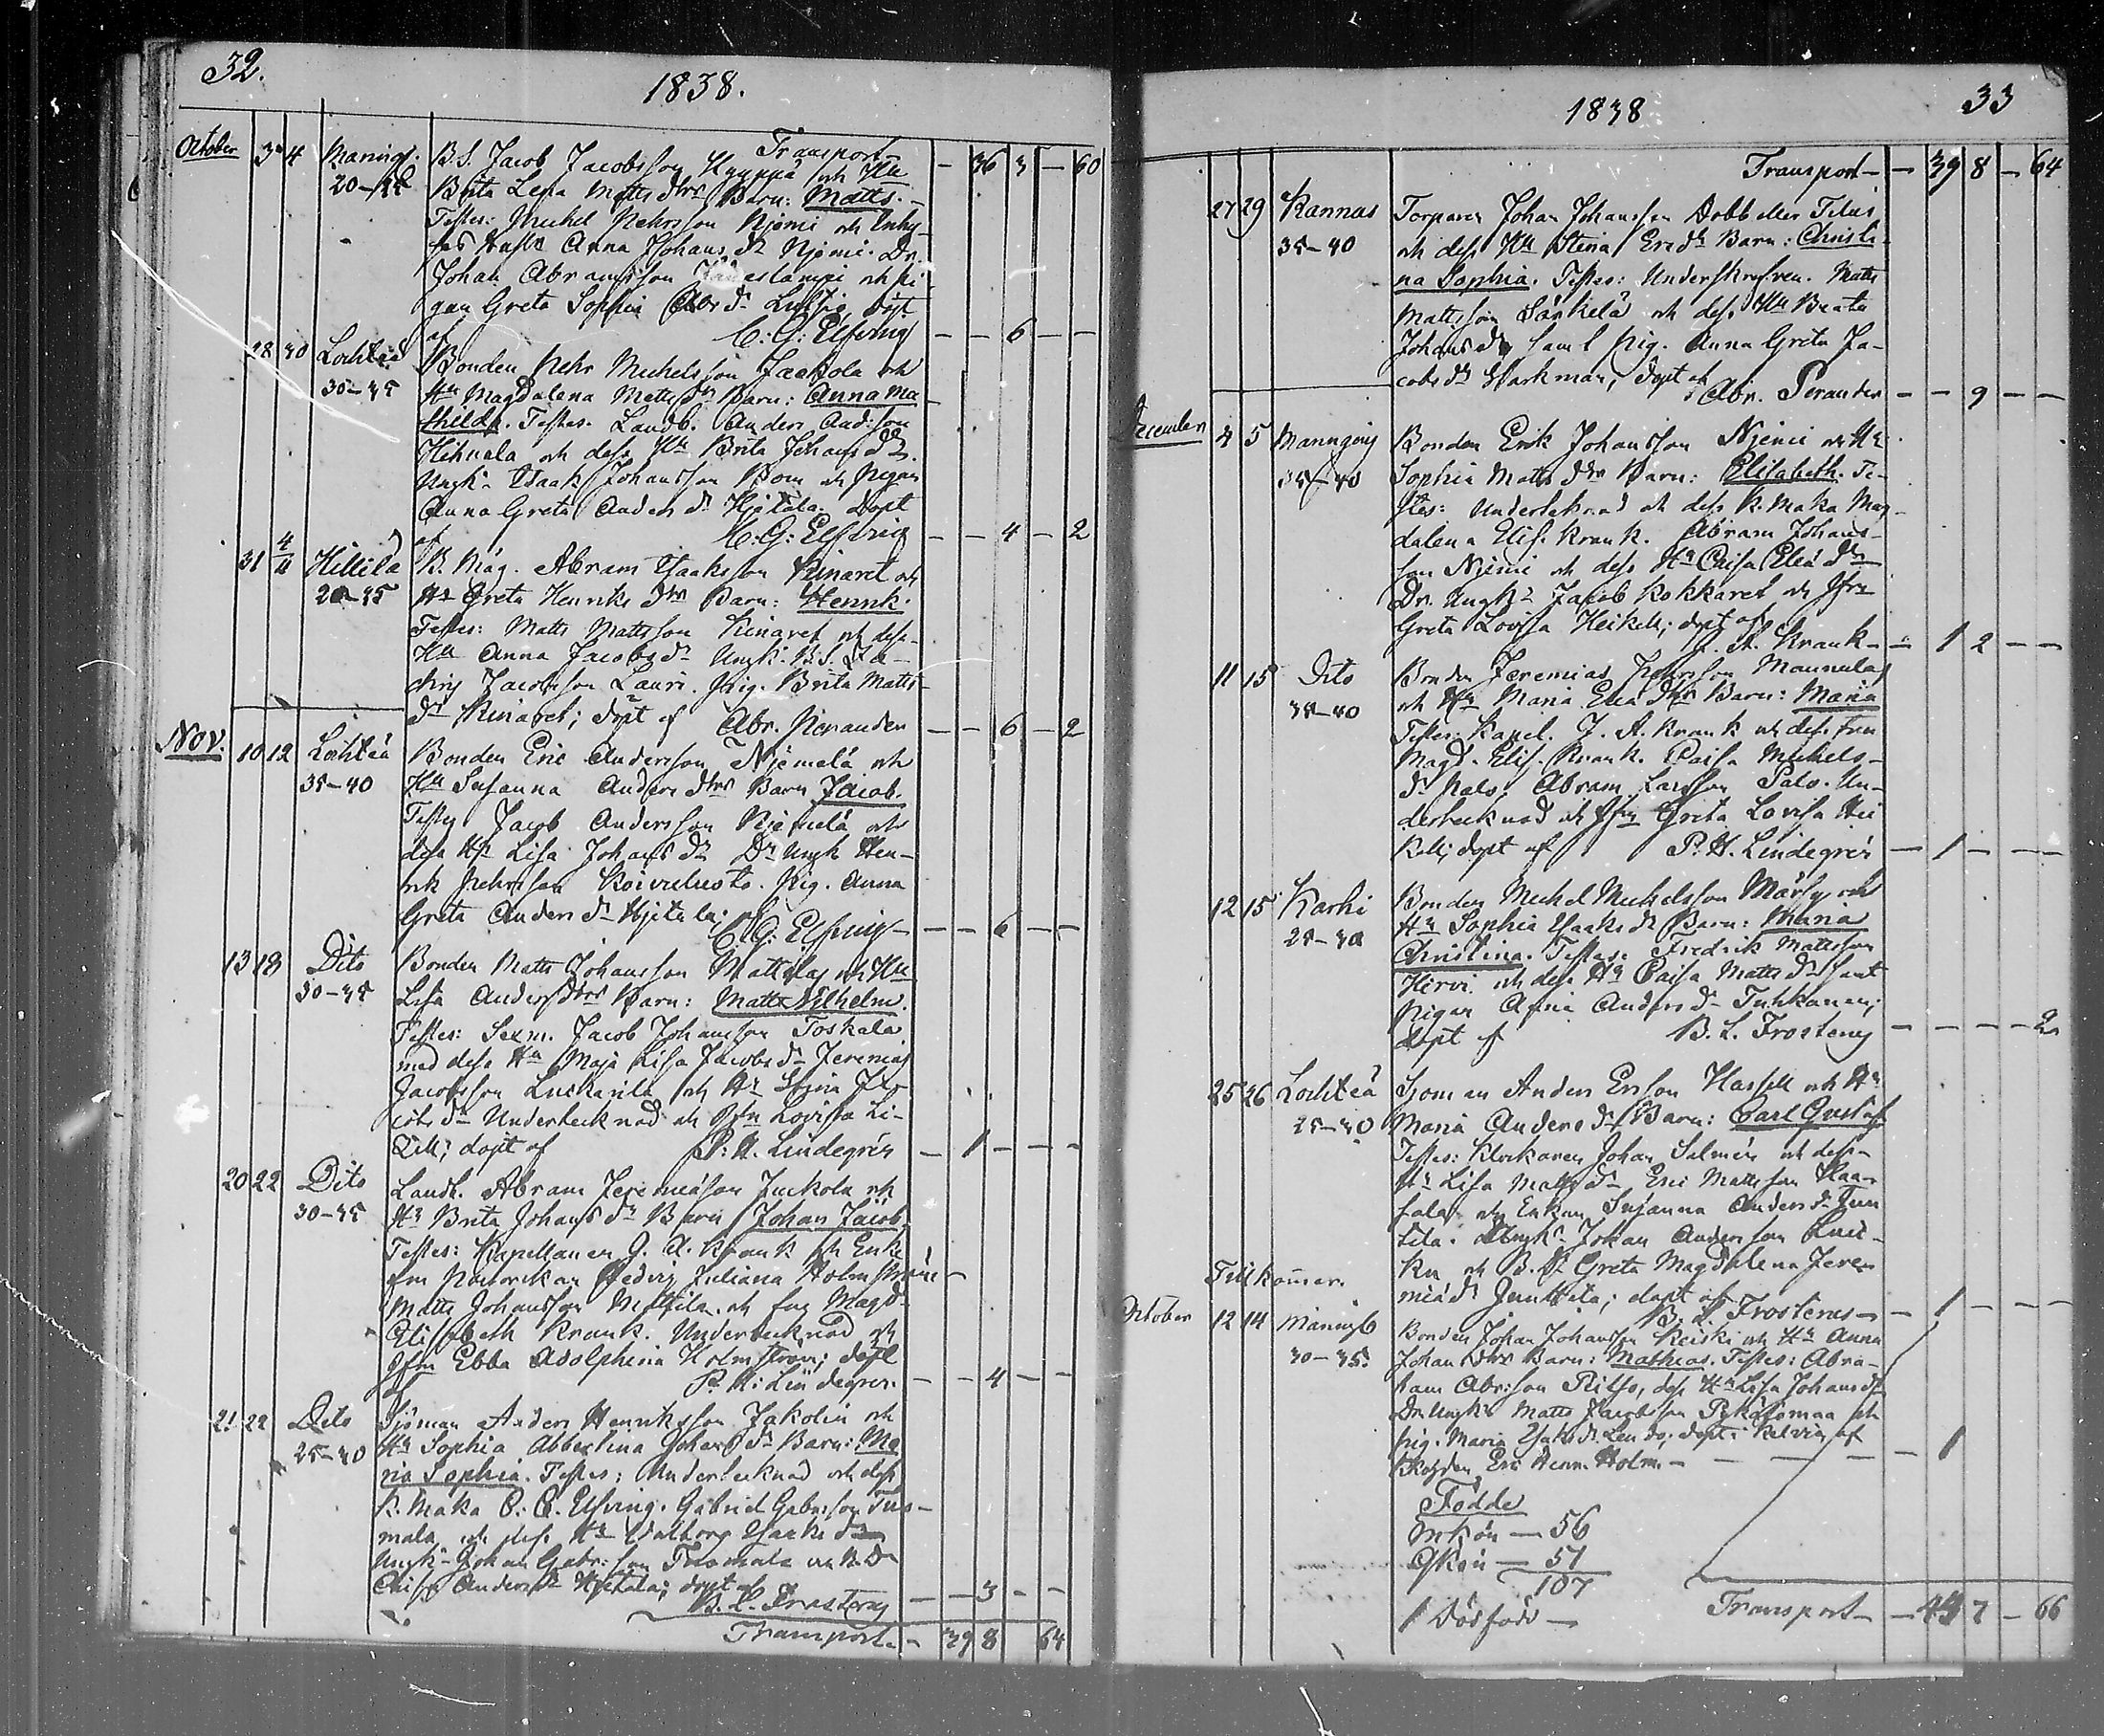 32.
1838.
Transport — 36 3 — 60
October 3 4 Maning
B.S. Jacob Jacobsson Hyyppä och Hu
20-25 Brita Lena Matts dtrs Barn: Matts.
Testes: Michel Pehrsson Njemi och
Hustr Anna Johans dr Njemi. Dr.
Johan Abramsson och pi-
gan Greta Sophia Abr dr dopt
af C: G: Elfving — — 6 — —
28 30 Lochteå Bonden Pehr Michelsson Jaakola och
30-35 Hu Magdalena Matts dtr Barn: Anna Ma
thilda. Testes. Landb. Anders And:sson
Hihnala och dess Hu Brita Johans dr.
Ungk. Isaak Johansson och Pigan
Anna Greta Anders dr Hjetala. Dopt
af C: G: Elfving — — 4 — 2
31 4/11 Hillilä B. Måg. Abram Isaksson Kinaret och
20-25 Hu Greta Henriks dtrs Barn: Henrik.
Testes: Matts Mattsson Kinaret och dess
Hu Anna Jacobs dr Ungk. B.S. Za-
chris Jacobsson Lauri. Pig. Brita Matts-
dr Kinaret; dopt af Abr. Perander — — 6 — 2
Nov. 10 12 Lochteå Bonden Eric Andersson Njemelä och
35-40 Hu Susanna Anders dtrs Barn Jacob.
Testes Jacob Andersson Njemelä och
dess Hu Lisa Johans dr Dr Ungk Hen-
rik Pehrsson Koivulusto. Pig. Anna
Greta Anders dr Hjetala; af
C. G: Elfving — — 6 — —
13 18 Dito Bonden Matts Johansson Mattila och Hu
30-35 Lisa Anders dtrs Barn: Matts Wilhelm.
Testes: Sexm. Jacob Johansson Toskala
med dess Hu Maja Lisa Jacobs dr Jeremias
Jacobsson och Hu Stina Ja-
cobs dr Undertecknad och Jfru Lovisa Li-
dopt af P: H. Lindegrén — 1 — — —
20 22 Dito Landb. Abram Jeremiasson Juckola och
30-35 Hu Brita Johans dr Barn Johan Jacob
Testes: Kapellanen J. A. Krank och Enke
fru Hedvig Juliana Holmström —
Matts Johansson Mattila. och fru Magd-
Elisabeth Krank. Undertecknad och
Jfru Ebba Adolphina Holmström; dopt
af P. H: Lindegren. — — 4 — —
21 22 Dito Sjöman Anders Henriksson Jakolin och
25-30 Hu Sophia Abbertina Johans dr Barn: Ma
ria Sophia. Testes: Undertecknad och dess
K. Maka C: C. Elfving. Gabriel Gabr:sson Tuo-
mala och dess Hu Walborg Isaaks dr
Ungk. Johan Gabr:sson Tuomala och B.D.
Caisa Anders dr Hjetala; dopt af
B. L. Frosterus — — 3 — —
Transport — 39 8 64
33
1838
Transport — — 39 8 — 64
27 29 Kannus Torparen Johan Johansson Dobb eller Titus
35-40 och dess Hu Stina Ers dr Barn: Christi-
na Sophia. Testes: Underskrefven. Matts
Mattsson Särkelä och dess Hu Beata
Johans dr samt pig. Anna Greta Ja-
cobs dr Workman, dopt af
Abr. Perander — — 9 — —
December 4 5 Manning Bonden Erik Johansson Njemi och Hu
35-40 Sophia Matts dtr Barn: Elisabeth. Te-
stes: Undertecknad och dess K. Maka Mag-
dalena Elis. Krank. Abram Johans-
son Njemi och dess Hu Caisa Elia dtr
Dr. Ungk. Jacob Kokkaret och Jfru
Greta Lovisa Heikell; dopt af
J. A. Krank — — 1 2 — —
11 15 Dito Bonden Jeremias Pehrsson Mannula
35-40 och Hu Maria Elia dtr Barn: Maria
Testes: Kapel. J. A. Krank och dess Fru
Magd. Elis. Krank. Caisa Michels-
dr Palo. Abram Larsson Palo. Un-
dertecknad och Jfru Greta Lovisa Hei
kell; dopt af P. H. Lindegrén — 1 — — —
12 15 Karhi Bonden Michel Michelsson Märsy och
25-30 Hu Sophia Isaaks dr Barn: Maria
Christina. Testes: Fredrik Mattsson
Hirvi och dess Hu Caisa Matts dr samt
Pigan Anna Anders dr Tuhkanen;
dopt af B. L. Frosterus — — — — 2
25 26 Lochteå Sjöman Anders Ersson Hassell och Hu
25-30 Maria Anders dr Barn: Carl Gustaf
Testes: Klockaren Johan Salmén och dess
Hu Lisa Matts dr Eric Mattsson Haa-
pala och Enkan Susanna Anders dr Jun
tila. Ungk. Johan Andersson
och B. D. Greta Magdalena Jere-
miä dr Junttila; dopt af
B. L. Frosterus — 1 — — —
Tillkommer.
October 12 14 Maning Bonden Johan Johansson Keiski och Hu Anna
30-35. Johans dtrs Barn: Mathias. Testes: Abra-
ham Abr:sson dess Hu Lisa Johans dr
Dr. Ungk. Matts Jacobsson och
pig. Maria Isaks dr dopt i Kelviå af
Eric Henr. Holm. — — — — — 1
Födde
Mkön — 56
Qkön — 51
107
1 Dödfödd —
Transport — — 44 7 — 66